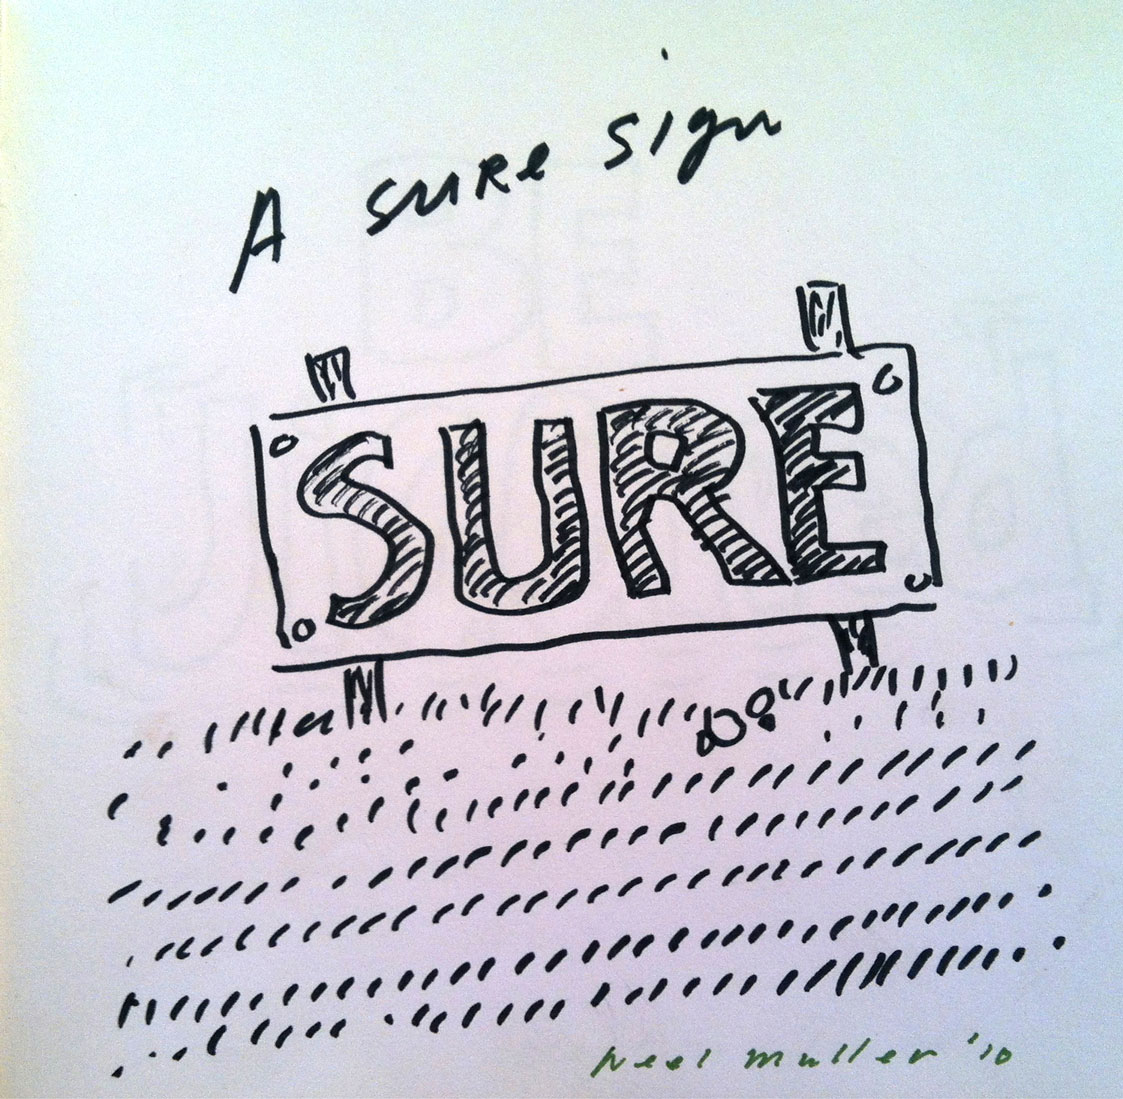 A sure sign
SURE
Neel Muller '10